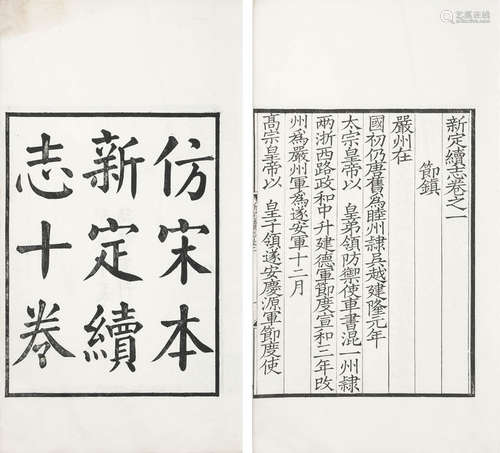 仿宋本
新定續
志十卷
新定續志卷之一
節鎮
嚴州在
國初仍唐舊為睦州隸吳越建隆元年
太宗皇帝以 皇弟領防禦使軍書混一州隸
兩浙西路政和中升建德軍節度宣和三年改
州為嚴州軍為遂安軍十二月
高宗皇帝以 皇子領遂安慶源軍節度使